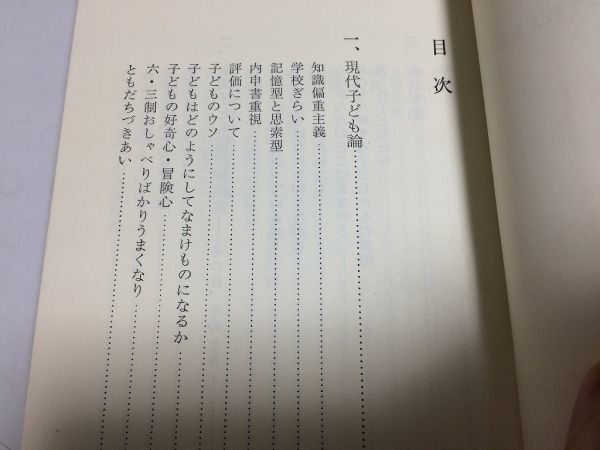 目次
一、現代子ども論
知識偏重主義
学校ぎらい
記憶型と思索型
内申書重視
評価について
子どものウソ
子どもはどのようにしてなまけものになるか
子どもの好奇心・冒険心
六・三制おしゃべりばかりうまくなり
ともだちづきあい